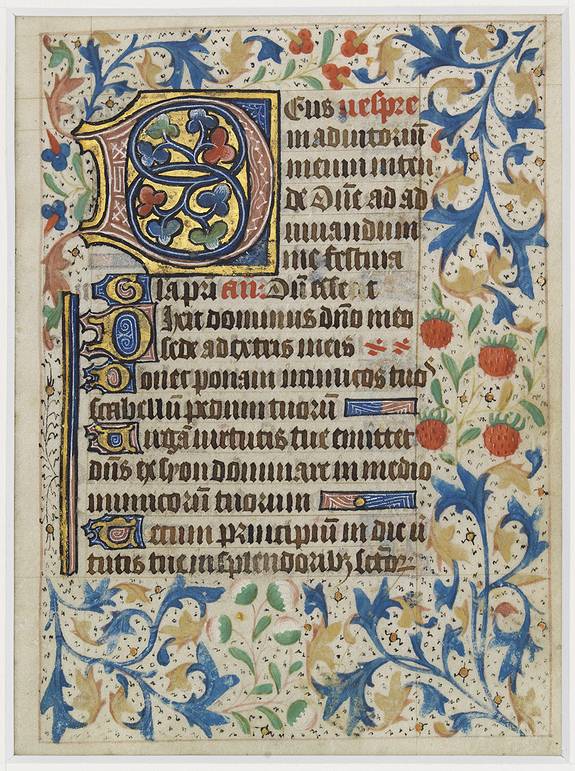 Deus vespre
in adiutoriū
meum inten
de Dn̄e ad ad
iuuandum
me festina
Gl̄a pr̄i an: Dū esset
Dixit dominus dn̄o meo
sede ad dextris meis
Donec ponam inimicos tuos
scabellū pedum tuorū
Uirgā uirtutis tue emittet
dn̄s ex syon dominare in medio
inimicorū tuorum
Tecum principiū in die uir
tutis tue in splendoribꝫ sctōꝝ